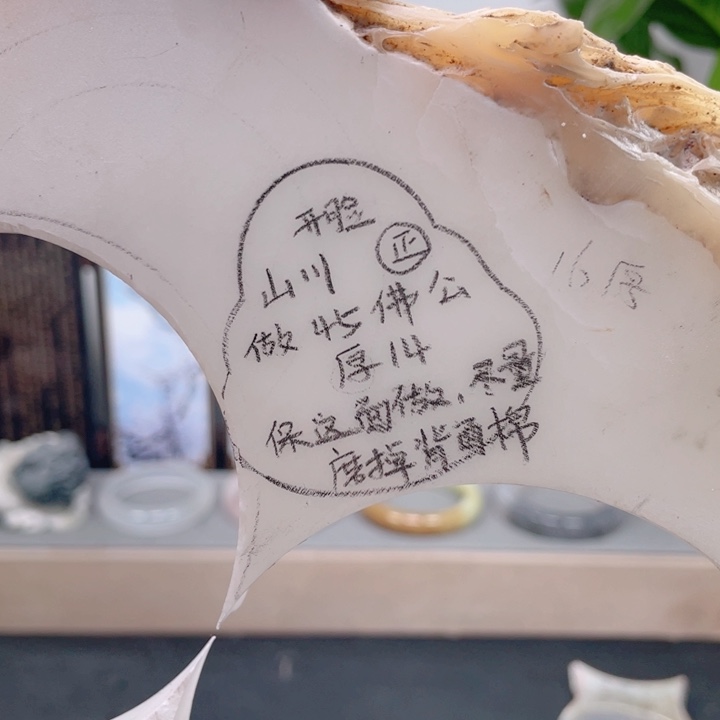 开脸
正
山川
做45佛公
厚14
保这面做,尽量
磨掉背面棉
16厚